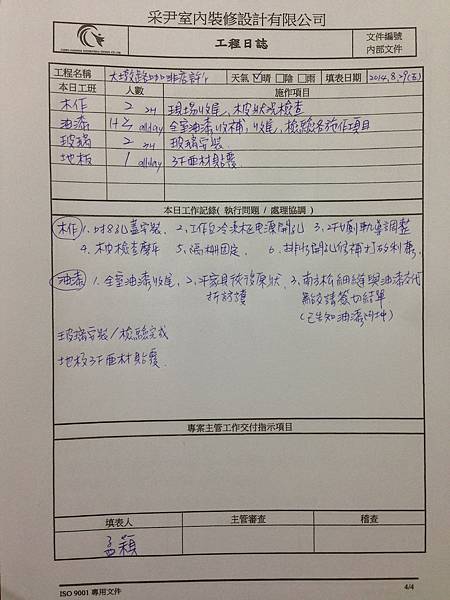 采尹室內裝修設計有限公司
工程日誌
文件編號
內部文件
工程名稱 大墩路咖啡店 天氣 ☑晴 □陰 □雨 填表日期 2014.8.29(五)
本日工班 人數 施作項目
木作 2 2H 現場收尾,木皮狀況檢查
油漆 1+2 allday 全室油漆收補,收尾,檢驗各施作項目
玻璃 2 2H 玻璃安裝
地板 1 allday 3F面材貼覆
本日工作記錄( 執行問題 / 處理協調 )
木作 1. 封孔蓋安裝 2. 工作台冷凍柜電源開孔 3. 2F 軌道調整
4. 木皮檢查磨平 5. 固定 6. 排水開孔修補
油漆 1. 全室油漆收尾 2. 傢具後復原狀 3. 南方松細縫與油漆交代
拆紙護 無誤請簽切結單
(已告知油漆 )
玻璃安裝/檢驗完成
地板3F面材貼覆
專案主管工作交付指示項目
填表人 主管審查 稽查
孟穎
ISO 9001 專用文件 4/4